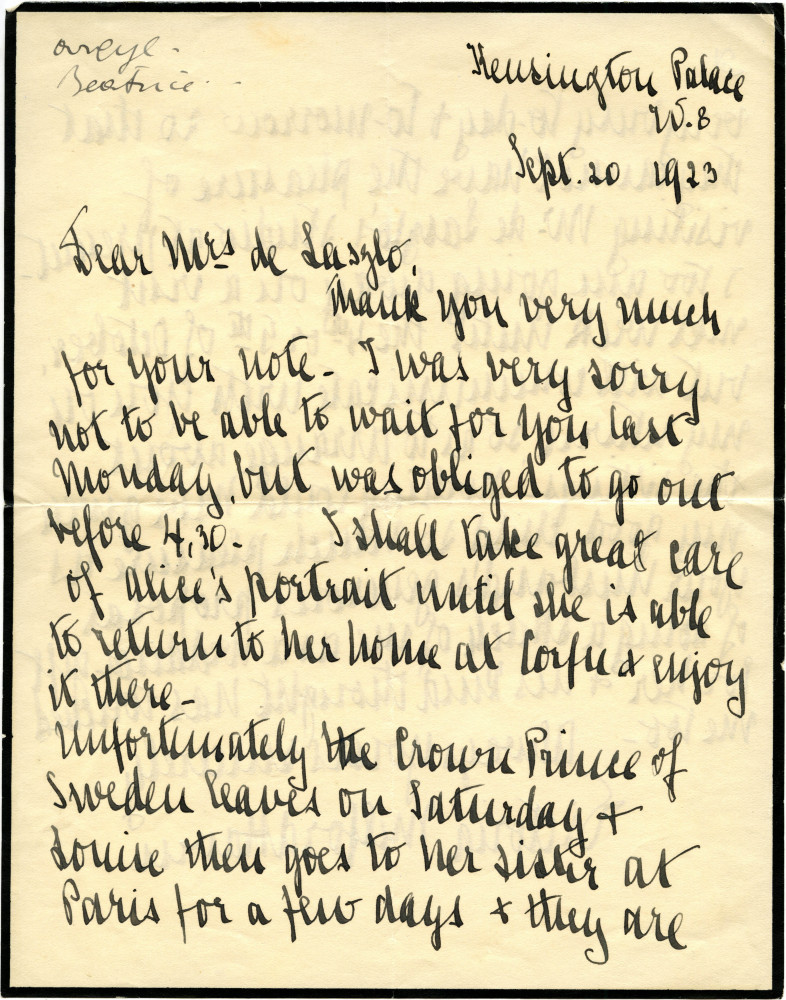 Argyll -
Beatrice - -
Kensington Palace
W.8
Sept. 20 1923
Dear Mrs de Laszlo,
Thank you very much
for your note - I was very sorry
not to be able to wait for you last
Monday, but was obliged to go out
before 4,30 - I shall take great care
of Alice's portrait until she is able
to return to her home at Corfu & enjoy
it there -
Unfortunately the Crown Prince of
Sweden leaves on Saturday &
Louise then goes to her sister at
Paris for a few days & they are